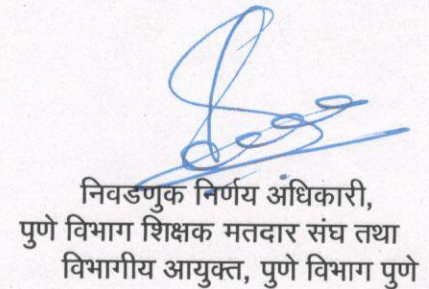 निवडणुक निर्णय अधिकारी,
पुणे विभाग शिक्षक मतदार संघ तथा
विभागीय आयुक्त, पुणे विभाग पुणे